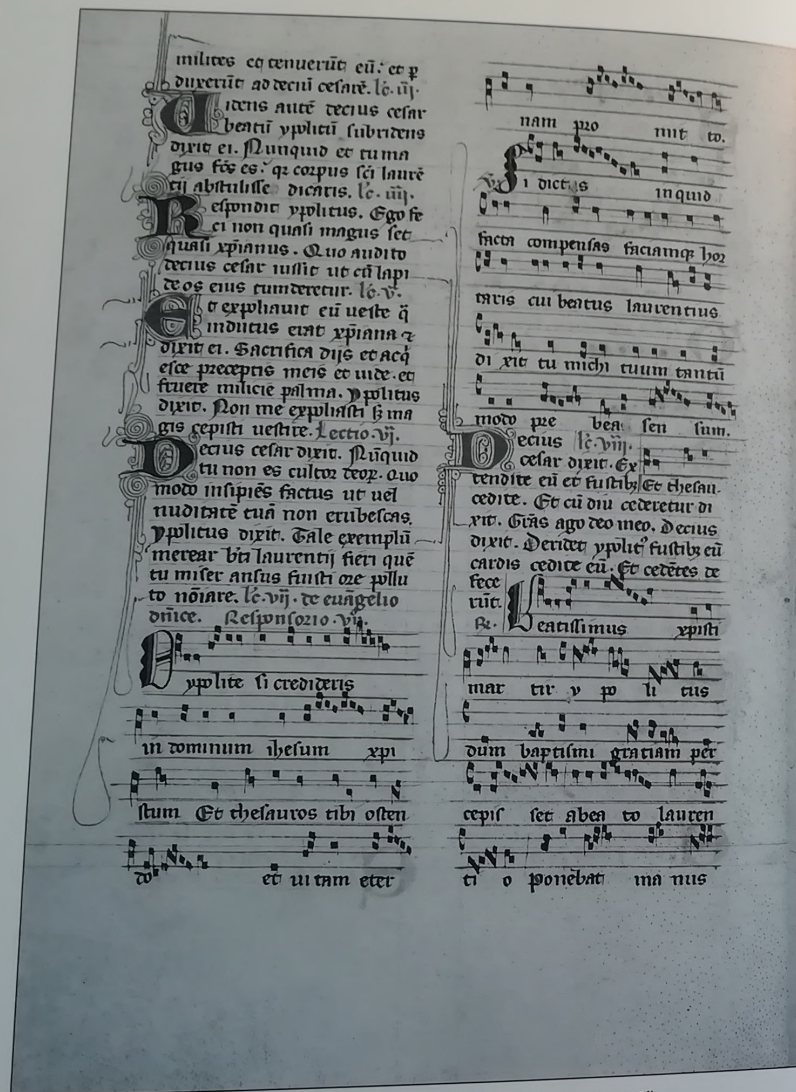 milites eq tenuerūt eū: et p
duxerūt ad deciū cesarē. lc̄. iij.
Uidens autē decius cesar
beatū ypolitū subridens
dixit ei. Nunquid et tu ma
gus fc̄s es: qr corpus sc̄i laurē
tij abstulisse dicaris. lc̄. iiij.
Respondit ypolitus. Ego fe
ci non quasi magus set
quasi xp̄ianus. Quo audito
decius cesar iussit ut cū lapi
de os eius tunderetur. lc̄. v.
Et expoliauit eū ueste q̄
indutus erat xp̄iana ⁊
dixit ei. Sacrifica dijs et acq̄
esce preceptis meis et uide. et
fruere milicie palma. ypolitus
dixit. Non me expoliasti sʒ ma
gis cepisti uestire. Lectio. vj.
Decius cesar dixit. Nūquid
tu non es cultor deoꝝ. Quo
modo insipiēs factus ut uel
nuditatē tuā non erubescas.
ypolitus dixit. Tale exemplū
merear bt̄i laurentij fieri quē
tu miser ausus fuisti ore pollu
to nōiare. lc̄. vij. de euāgelio
dn̄ice. Responsorio. vij.
O ypolite si credideris
in dominum ihesum xpi
stum Et thesauros tibi osten
do et uitam eter
nam pro mit to.
Si dictis inquid
facta compensas faciamqʒ hor
taris cui beatus laurentius
di xit tu michi tuum tantū
modo pre bea sen sum.
Decius lc̄. viij.
cesar dixit. Ex
tendite eū et fustibʒ Et thesau.
cedite. Et cū diu cederetur di
xit. Grās ago deo meo. Decius
dixit. Deridet ypolit᷒ fustibʒ eū
cardis cedite eū. Et cedētes de
fece
rūt.
R. Beatissimus xpisti
mar tir y po li tus
dum baptismi gratiam per
cepis set abea to lauren
ti o ponebat ma nus